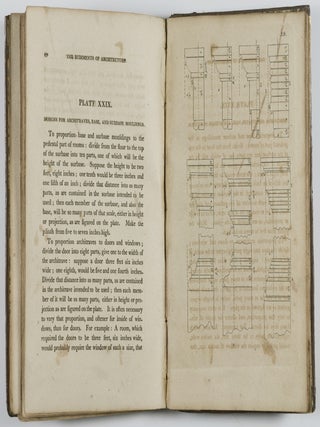 THE RUDIMENTS OF ARCHITECTURE.
PLATE XXIX.
DESIGNS FOR ARCHITRAVES, BASE, AND SURBASE MOULDINGS.
To proportion base and surbase mouldings to the
pedestal part of rooms: divide from the floor to the top
of the surbase into ten parts, one of which will be the
height of the surbase. Suppose the height to be two
feet, eight inches; one tenth would be three inches and
one fifth of an inch; divide that distance into as many
parts, as are contained in the surbase intended to be
used; then each member of the surbase, and also the
base, will be so many parts of that scale, either in height
or projection, as are figured on the plate. Make the
plinth from five to seven inches high.
To proportion architraves to doors and windows;
divide the door into eight parts, give one to the width of
the architrave: suppose a door three feet six inches
wide; one eighth, would be five and one fourth inches.
Divide that distance into as many parts, as are contained
in the architrave intended to be used; then each mem-
ber of it will be as many parts, either in height or pro-
jection as are figured on the plate. It is often necessary
to vary that proportion, and oftener for inside of win-
dows, than for doors. For example: A room, which
required the doors to be three feet, six inches wide,
would probably require the window of such a size, that